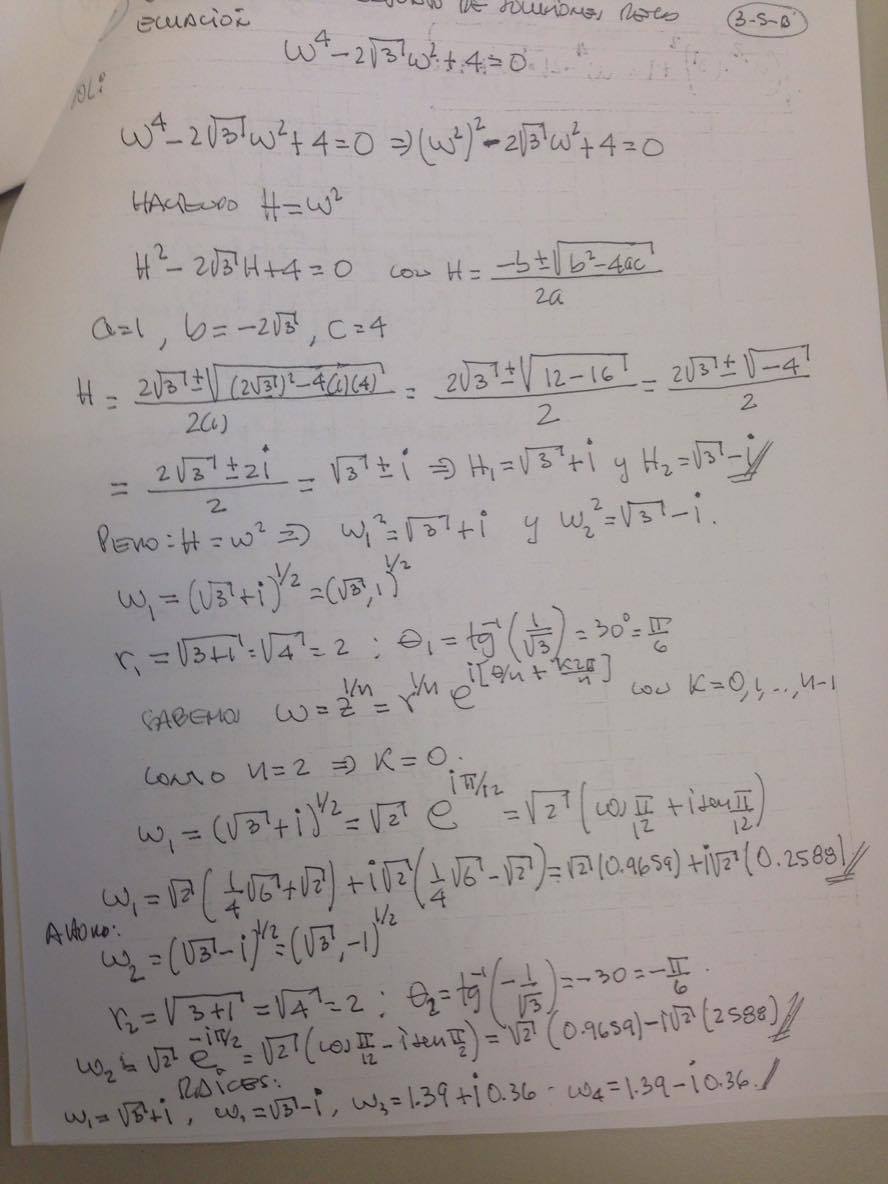 DE SOLUCIONES 3-S-B
ECUACIÓN
ω⁴ - 2√3 ω² + 4 = 0
ω⁴ - 2√3 ω² + 4 = 0 ⇒ (ω²)² - 2√3 ω² + 4 = 0
HACIENDO H = ω²
H² - 2√3 H + 4 = 0 con H = (-b ± √(b² - 4ac))/2a
a = 1, b = -2√3, c = 4
H = (2√3 ± √((2√3)² - 4(1)(4)))/2(1) = (2√3 ± √(12 - 16))/2 = (2√3 ± √-4)/2
= (2√3 ± 2i)/2 = √3 ± i ⇒ H₁ = √3 + i y H₂ = √3 - i
PERO: H = ω² ⇒ ω₁² = √3 + i y ω₂² = √3 - i.
ω₁ = (√3 + i)^1/2 = (√3, 1)^1/2
r₁ = √(3+1) = √4 = 2 ; θ₁ = tg⁻¹(1/√3) = 30° = π/6
SABEMOS ω = z^1/n = r^1/n e^i[θ/n + K2π/n] con K = 0, 1, ..., n-1
COMO n = 2 ⇒ K = 0.
ω₁ = (√3 + i)^1/2 = √2 e^iπ/12 = √2 (cos π/12 + i sen π/12)
ω₁ = √2 (1/4 √6 + √2) + i√2 (1/4 √6 - √2) = √2 (0.9659) + i√2 (0.2588)
AHORA:
ω₂ = (√3 - i)^1/2 = (√3, -1)^1/2
r₂ = √(3+1) = √4 = 2 ; θ₂ = tg⁻¹(-1/√3) = -30 = -π/6.
ω₂ = √2 e^-iπ/2 = √2 (cos π/12 - i sen π/2) = √2 (0.9659) - i√2 (2588)
RAÍCES:
ω₁ = √3 + i, ω₁ = √3 - i, ω₃ = 1.39 + i 0.36 - ω₄ = 1.39 - i 0.36.